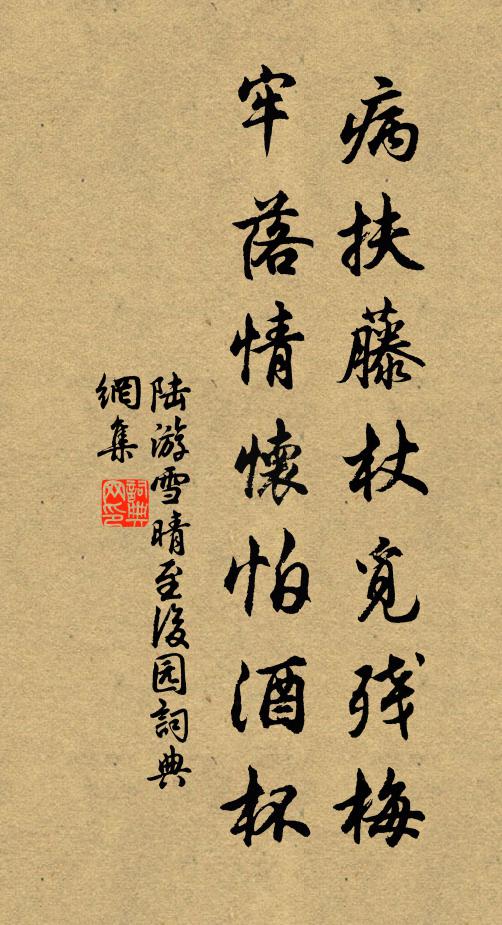 病扶藤杖觅残梅
牢落情懷怕酒杯
陆游雪晴至後园詞典
網集
詞典網印